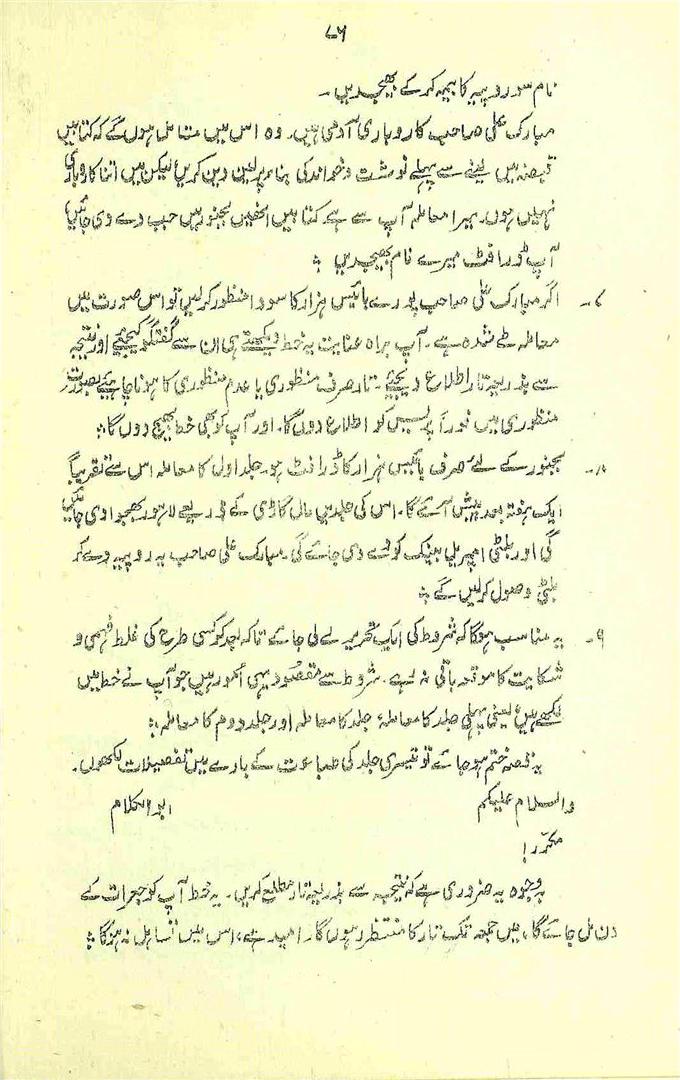 ۷۶
نام سو روپیہ کا بیمہ کر کے بھیجدیں۔
مبارک علی صاحب کاروباری آدمی ہیں۔ وہ اس میں متامل ہوں گے کہ کتابیں
قبضہ میں لینے سے پہلے نوشت و خواند کی بناء پر لین دین کریں لیکن میں اتنا کاروباری
نہیں ہوں۔ میرا معاملہ آپ سے ہے۔ کتابیں انھیں بجنور میں جب دے دی جائیں
آپ ڈورافٹ میرے نام بھیجدیں ؛
۷۔ اگر مبارک علی صاحب پورے بائیس ہزار کا سودا منظور کرلیں تو اس صورت میں
معاملہ طے شدہ ہے۔ آپ براہ عنایت یہ خط دیکھتے ہی ان سے گفتگو کیجئے اور نتیجہ
سے بذریعہ تار اطلاع دیجئے۔ تار صرف منظوری یا عدم منظوری کا ہونا چاہیئے بصورت
منظوری میں فوراً پریس کو اطلاع دوں گا۔ اور آپ کو بھی خط بھیج دوں گا؛
۸۔ بجنور کے لئے صرف بائیس ہزار کا ڈرافٹ ہو۔ جلد اول کا معاملہ اس سے تقریباً
ایک ہفتہ بعد پیش آئے گا۔ اس کی جلدیں مال گاڑی کے ذریعے لاہور بھجوا دی جائیں
گی اور بلٹی امپریل بینک کو دے دی جائے گی۔ مبارک علی صاحب یہ روپیہ دے کر
بلٹی وصول کرلیں گے ؛
۹۔ یہ مناسب ہوگا کہ شروط کی ایک تحریر لے لی جائے تاکہ بعد کو کسی طرح کی غلط فہمی و
شکایت کا موقعہ باقی نہ رہے۔ شروط سے مقصود یہی اُمور ہیں جو آپ نے خط میں
لکھے ہیں یعنی پہلی جلد کا معاملۂ جلد کا معاملہ اور جلد دوم کا معاملہ ؛
یہ قصہ ختم ہو جائے تو تیسری جلد کی طباعت کے بارے میں تفصیلات لکھوں۔
والسلام علیکم
ابوالکلام
مکرّر!
بوجوہ یہ ضروری ہے کہ نتیجہ سے بذریعہ تار مطلع کریں۔ یہ خط آپ کو جمعرات کے
دن مل جائے گا، میں جمعہ تک تار کا منتظر رہوں گا۔ امید ہے، اس میں تساہل نہ ہوگا ؛